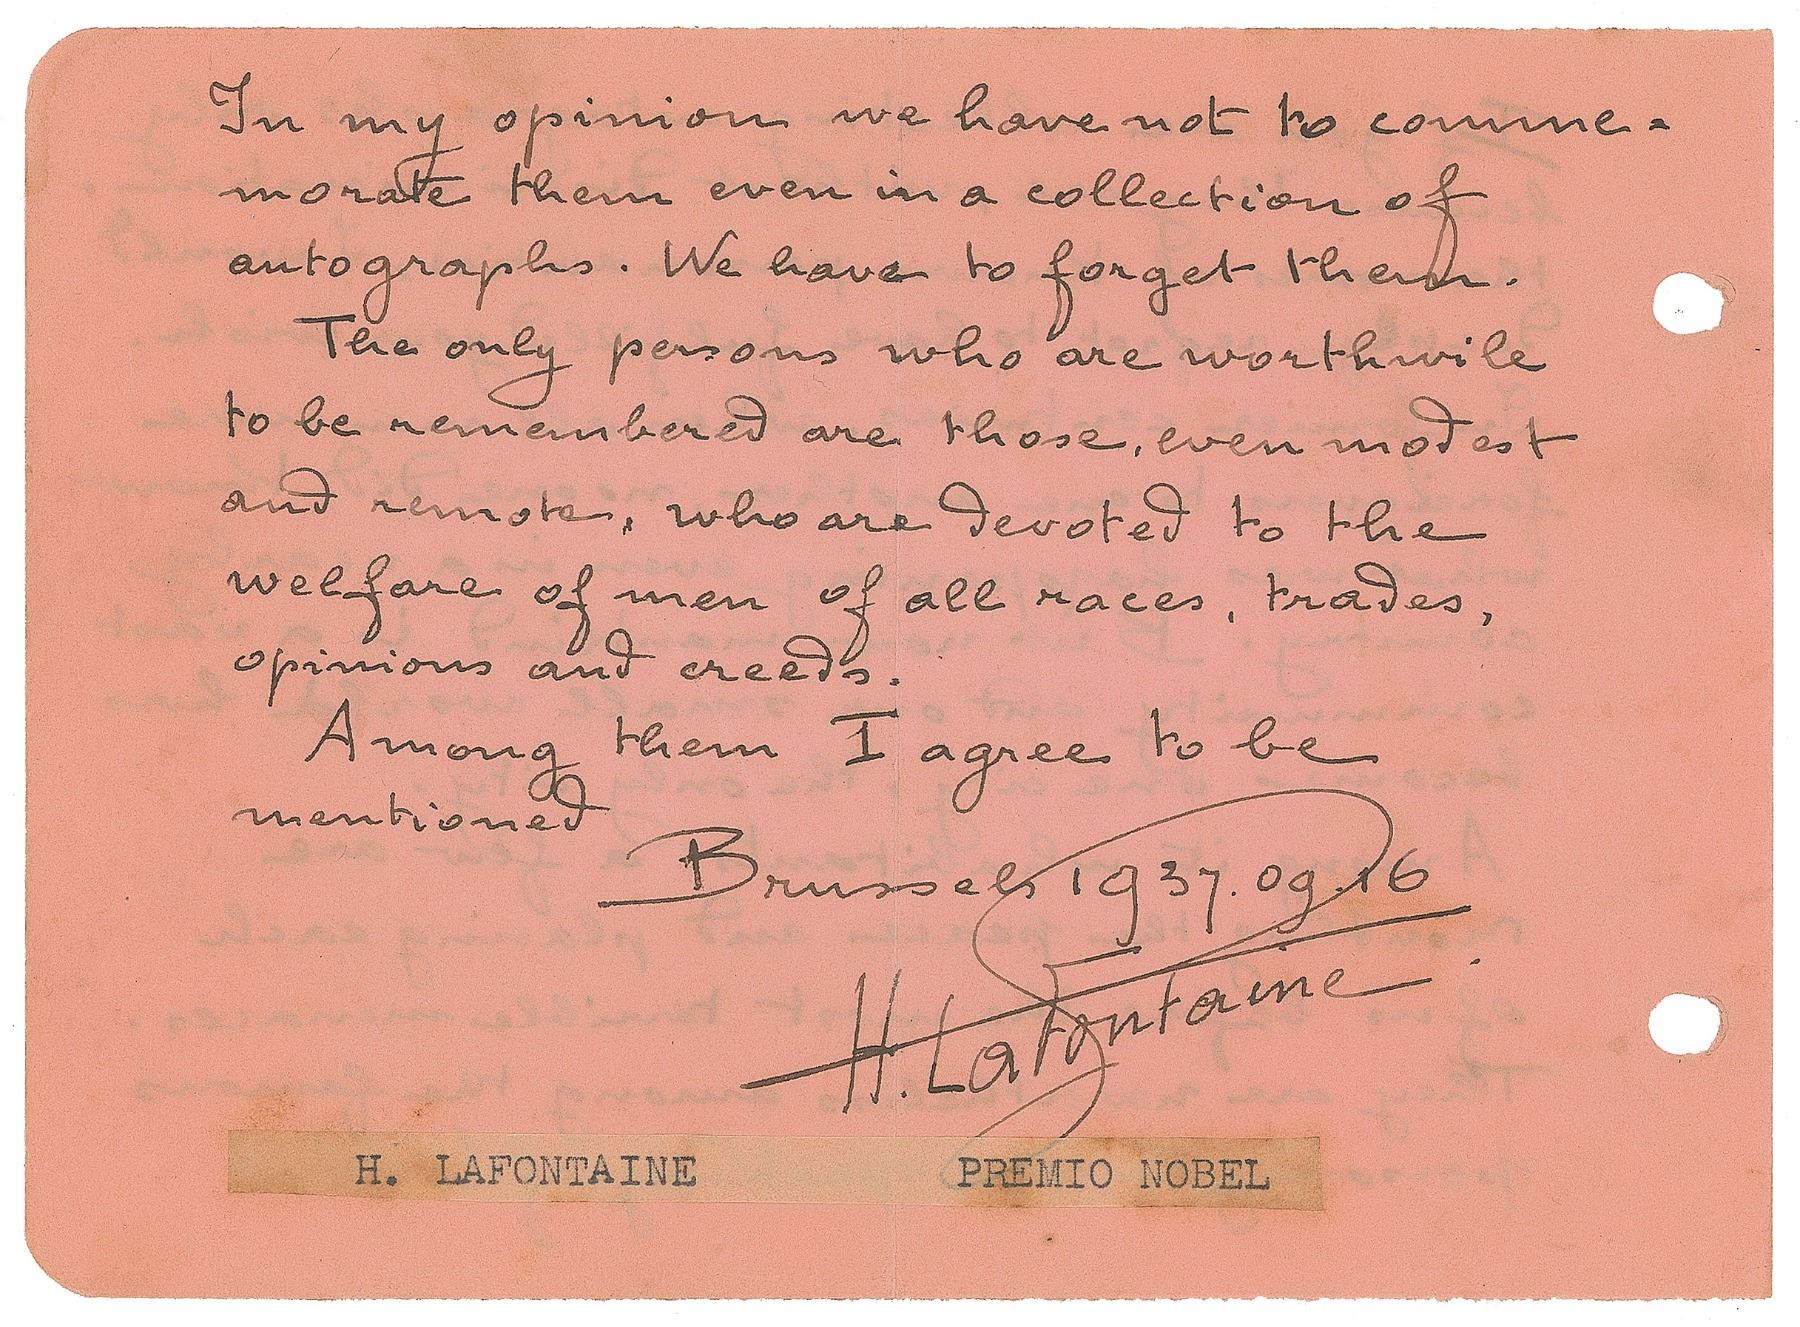 In my opinion we have not to comme-
morate them even in a collection of
autographs. We have to forget them.
The only persons who are worthwile
to be remembered are those, even modest
and remote, who are devoted to the
welfare of men of all races, trades,
opinions and creeds.
Among them I agree to be
mentioned
Brussels 1937.09.16
H. Lafontaine
H. LAFONTAINE PREMIO NOBEL